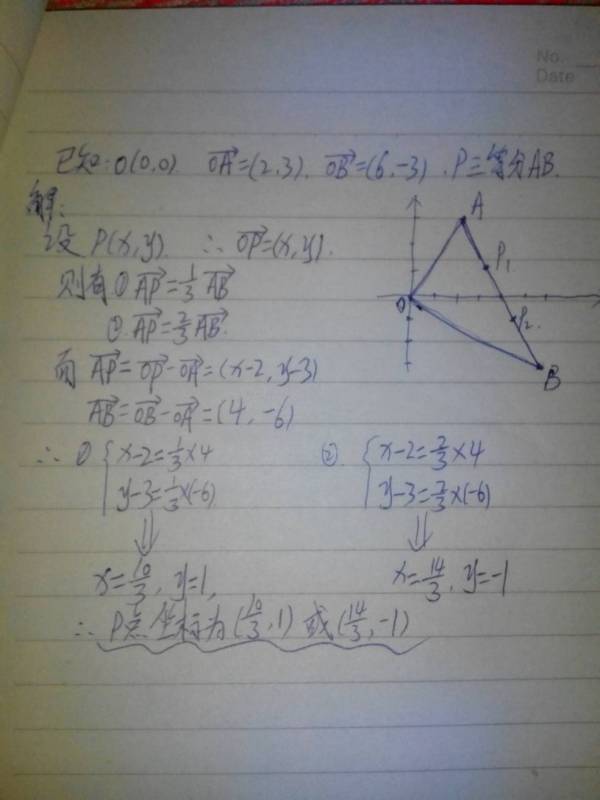 No.
Date
已知:O(0,0) OA→=(2,3), OB→=(6,-3), P三等分AB.
解:
设P(x,y) ∴OP→=(x,y).
则有①AP→=1/3AB→
②.AP→=2/3AB→.
而AP→=OP→-OA→=(x-2,y-3)
AB→=OB→-OA→=(4,-6)
∴①{x-2=1/3×4 ②.{x-2=2/3×4
y-3=1/3×(-6) y-3=2/3×(-6)
⇓ ⇓
x=10/3,y=1, x=14/3,y=-1
∴P点坐标为(10/3,1)或(14/3,-1)
A
P1
O
P2.
B